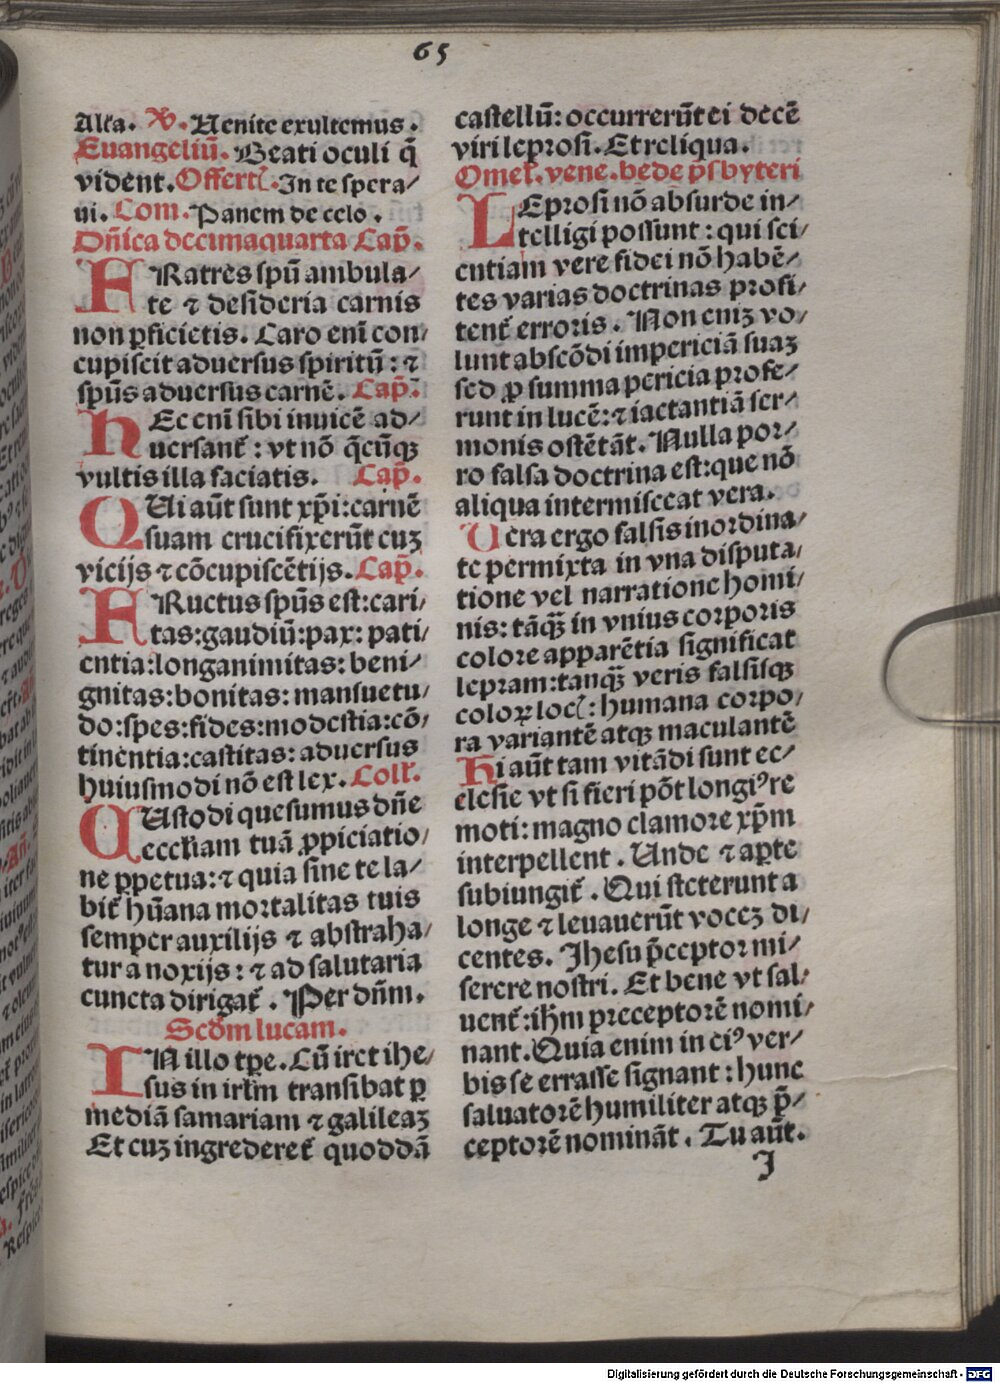 65
Alľa. ℣. Uenite exultemus.
Euangeliū. Beati oculi q̄
vident. Offertꝭ. In te spera⸗
ui. Com. Panem de celo.
Dn̄ica decimaquarta Cap̄.
FRatres spū ambula⸗
te ⁊ desideria carnis
non ꝑficietis. Caro eni᷑ con⸗
cupiscit aduersus spiritū: ⁊
spūs aduersus carnē. Cap̄.
HEc eni᷑ sibi inuicē ad⸗
uersant᷑: vt nō q̄cūqꝫ
vultis illa faciatis. Cap̄.
QUi aūt sunt xp̄i: carnē
suam crucifixerūt cuꝫ
vicijs ⁊ cōcupiscētijs. Cap̄.
FRuctus spūs est: cari⸗
tas: gaudiū: pax: pati⸗
entia: longanimitas: beni⸗
gnitas: bonitas: mansuetu⸗
do: spes: fides: modestia: cō⸗
tinentia: castitas: aduersus
huiusmodi nō est lex. Coll᷑.
CUstodi quesumus dn̄e
eccľiam tuā ꝓpiciatio⸗
ne ꝑpetua: ⁊ quia sine te la⸗
bit᷑ hūana mortalitas tuis
semper auxilijs ⁊ abstraha⸗
tur a noxijs: ⁊ ad salutaria
cuncta dirigat᷑. Per dn̄m.
Scd̄m lucam.
IN illo tꝑe. Cū iret ihe⸗
sus in irľm transibat ꝑ
mediā samariam ⁊ galileaꝫ
Et cuꝫ ingrederet᷑ quoddā
castellū: occurrerūt ei decē
viri leprosi. Et reliqua.
Omel᷑. vene. bede p̄sbyteri
LEprosi nō absurde in⸗
telligi possunt: qui sci⸗
entiam vere fidei nō habē⸗
tes varias doctrinas profi⸗
tent᷑ erroris. Non eniꝫ vo⸗
lunt abscōdi impericiā suaꝫ
sed ꝓ summa pericia profe⸗
runt in lucē: ⁊ iactantiā ser⸗
monis ostētāt. Nulla por⸗
ro falsa doctrina est: que nō
aliqua intermisceat vera.
Uera ergo falsis inordina⸗
te permixta in vna disputa⸗
tione vel narratione homi⸗
nis: tāqꝫ̄ in vnius corporis
colore apparētia significat
lepram: tanqꝫ̄ veris falsisqꝫ
coloꝝ locꝭ: humana corpo⸗
ra variantē atqꝫ maculantē
Hi aūt tam vitādi sunt ec⸗
clesie vt si fieri pōt longiꝰ re
moti: magno clamore xp̄m
interpellent. Unde ⁊ aꝑte
subiungit᷑. Qui steterunt a
longe ⁊ leuauerūt voceꝫ di⸗
centes. Jhesu p̄ceptor mi⸗
serere nostri. Et bene vt sal⸗
uent᷑: ih̄m preceptorē nomi⸗
nant. Quia enim in eiꝰ ver⸗
bis se errasse signant: hunc
saluatorē humiliter atqꝫ p̄⸗
ceptorē nomināt. Tu aūt.
J
Digitalisierung gefördert durch die Deutsche Forschungsgemeinschaft - DFG